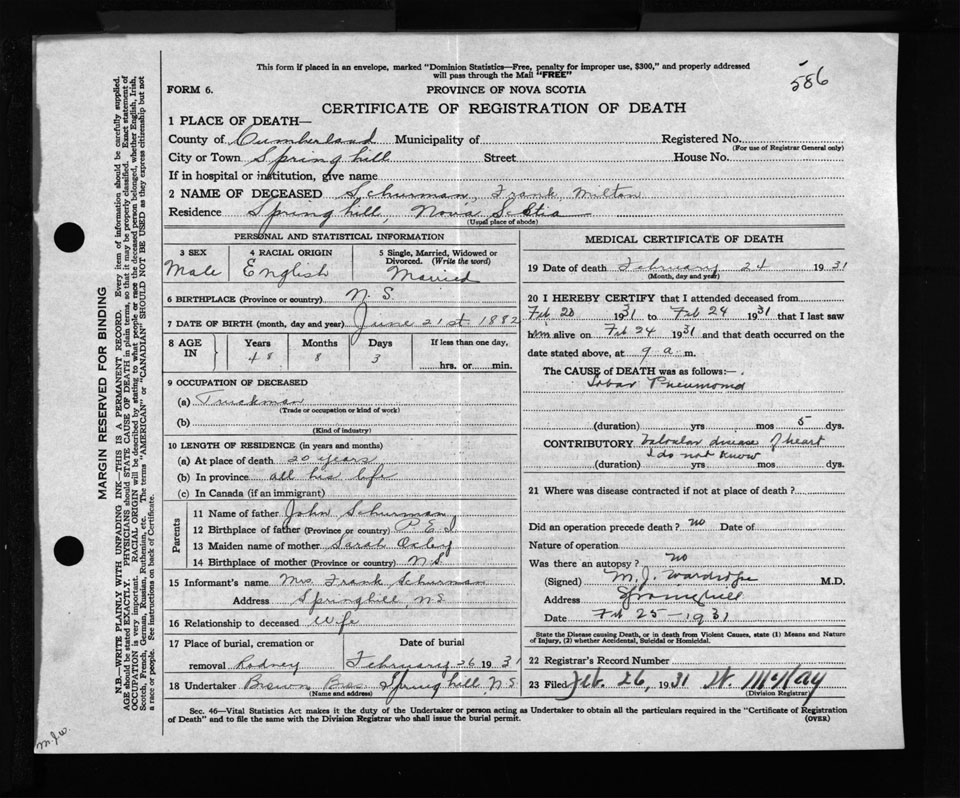 586
This form if placed in an envelope, marked "Dominion Statistics—Free, penalty for improper use, $300," and properly addressed
will pass through the Mail "FREE"
FORM 6. PROVINCE OF NOVA SCOTIA
CERTIFICATE OF REGISTRATION OF DEATH
1 PLACE OF DEATH—
County of Cumberland Municipality of Registered No.
(For use of Registrar General only)
City or Town Springhill Street House No.
If in hospital or institution, give name
2 NAME OF DECEASED Schurman, Frank Milton
Residence Springhill, Nova Scotia
(Usual place of abode)
PERSONAL AND STATISTICAL INFORMATION
3 SEX 4 RACIAL ORIGIN 5 Single, Married, Widowed or
Divorced. (Write the word)
Male English Married
6 BIRTHPLACE (Province or country) N.S.
7 DATE OF BIRTH (month, day and year) June 21st 1882
8 AGE IN Years Months Days If less than one day,
48 8 3 hrs. or min.
9 OCCUPATION OF DECEASED
(a) Truckman
(Trade or occupation or kind of work)
(b)
(Kind of industry)
10 LENGTH OF RESIDENCE (in years and months)
(a) At place of death 20 years
(b) In province all his life
(c) In Canada (if an immigrant)
Parents
11 Name of father John Schurman
12 Birthplace of father (Province or country) P.E.I
13 Maiden name of mother Sarah Oxley
14 Birthplace of mother (Province or country) N.S.
15 Informant's name Mrs. Frank Schurman
Address Springhill, N.S.
16 Relationship to deceased Wife
17 Place of burial, cremation or Date of burial
removal Rodney February 26 1931
18 Undertaker Brown Bros Springhill, N.S
(Name and address)
MEDICAL CERTIFICATE OF DEATH
19 Date of death February 24 1931
(Month, day and year)
20 I HEREBY CERTIFY that I attended deceased from
Feb 20 1931 to Feb 24 1931 that I last saw
him alive on Feb 24 1931 and that death occurred on the
date stated above, at 9 a. m.
The CAUSE of DEATH was as follows:—
Lobar Pneumonia
(duration) yrs mos 5 dys.
CONTRIBUTORY Valvular disease of heart
I do not know
(duration) yrs mos dys.
21 Where was disease contracted if not at place of death?
Did an operation precede death? no Date of
Nature of operation
Was there an autopsy? no
(Signed) M.J. Wardrope M.D.
Address Springhill
Date Feb 25—1931
State the Disease causing Death, or in death from Violent Causes, state (1) Means and Nature
of Injury, (2) whether Accidental, Suicidal or Homicidal.
22 Registrar's Record Number
23 Filed Feb. 26, 1931 W. McKay
(Division Registrar)
Sec. 46—Vital Statistics Act makes it the duty of the Undertaker or person acting as Undertaker to obtain all the particulars required in the "Certificate of Registration
of Death" and to file the same with the Division Registrar who shall issue the burial permit. (OVER)
MARGIN RESERVED FOR BINDING
N.B.—WRITE PLAINLY WITH UNFADING INK—THIS IS A PERMANENT RECORD. Every item of information should be carefully supplied.
AGE should be stated EXACTLY. PHYSICIANS should STATE CAUSE OF DEATH in plain terms, so that it may be properly classified. Exact statement of
OCCUPATION is very important. RACIAL ORIGIN will be described by stating to what people or race the deceased person belonged, whether English, Irish,
Scotch, French, German, Russian, Ruthenian, etc. The terms "AMERICAN" or "CANADIAN" SHOULD NOT BE USED as they express citizenship but not
a race or people. See instructions on back of Certificate.
M.J.W.